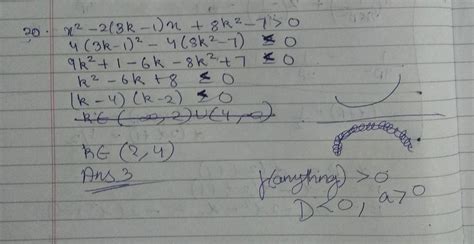 20. x² - 2(3k-1)x + 8k² - 7 > 0
4(3k-1)² - 4(8k²-7) ≤ 0
9k² + 1 - 6k - 8k² + 7 ≤ 0
k² - 6k + 8 ≤ 0
(k-4)(k-2) ≤ 0
k∈(-∞,2)∪(4,∞)
k∈(2,4)
Ans 3
f(anything) > 0
D<0, a>0